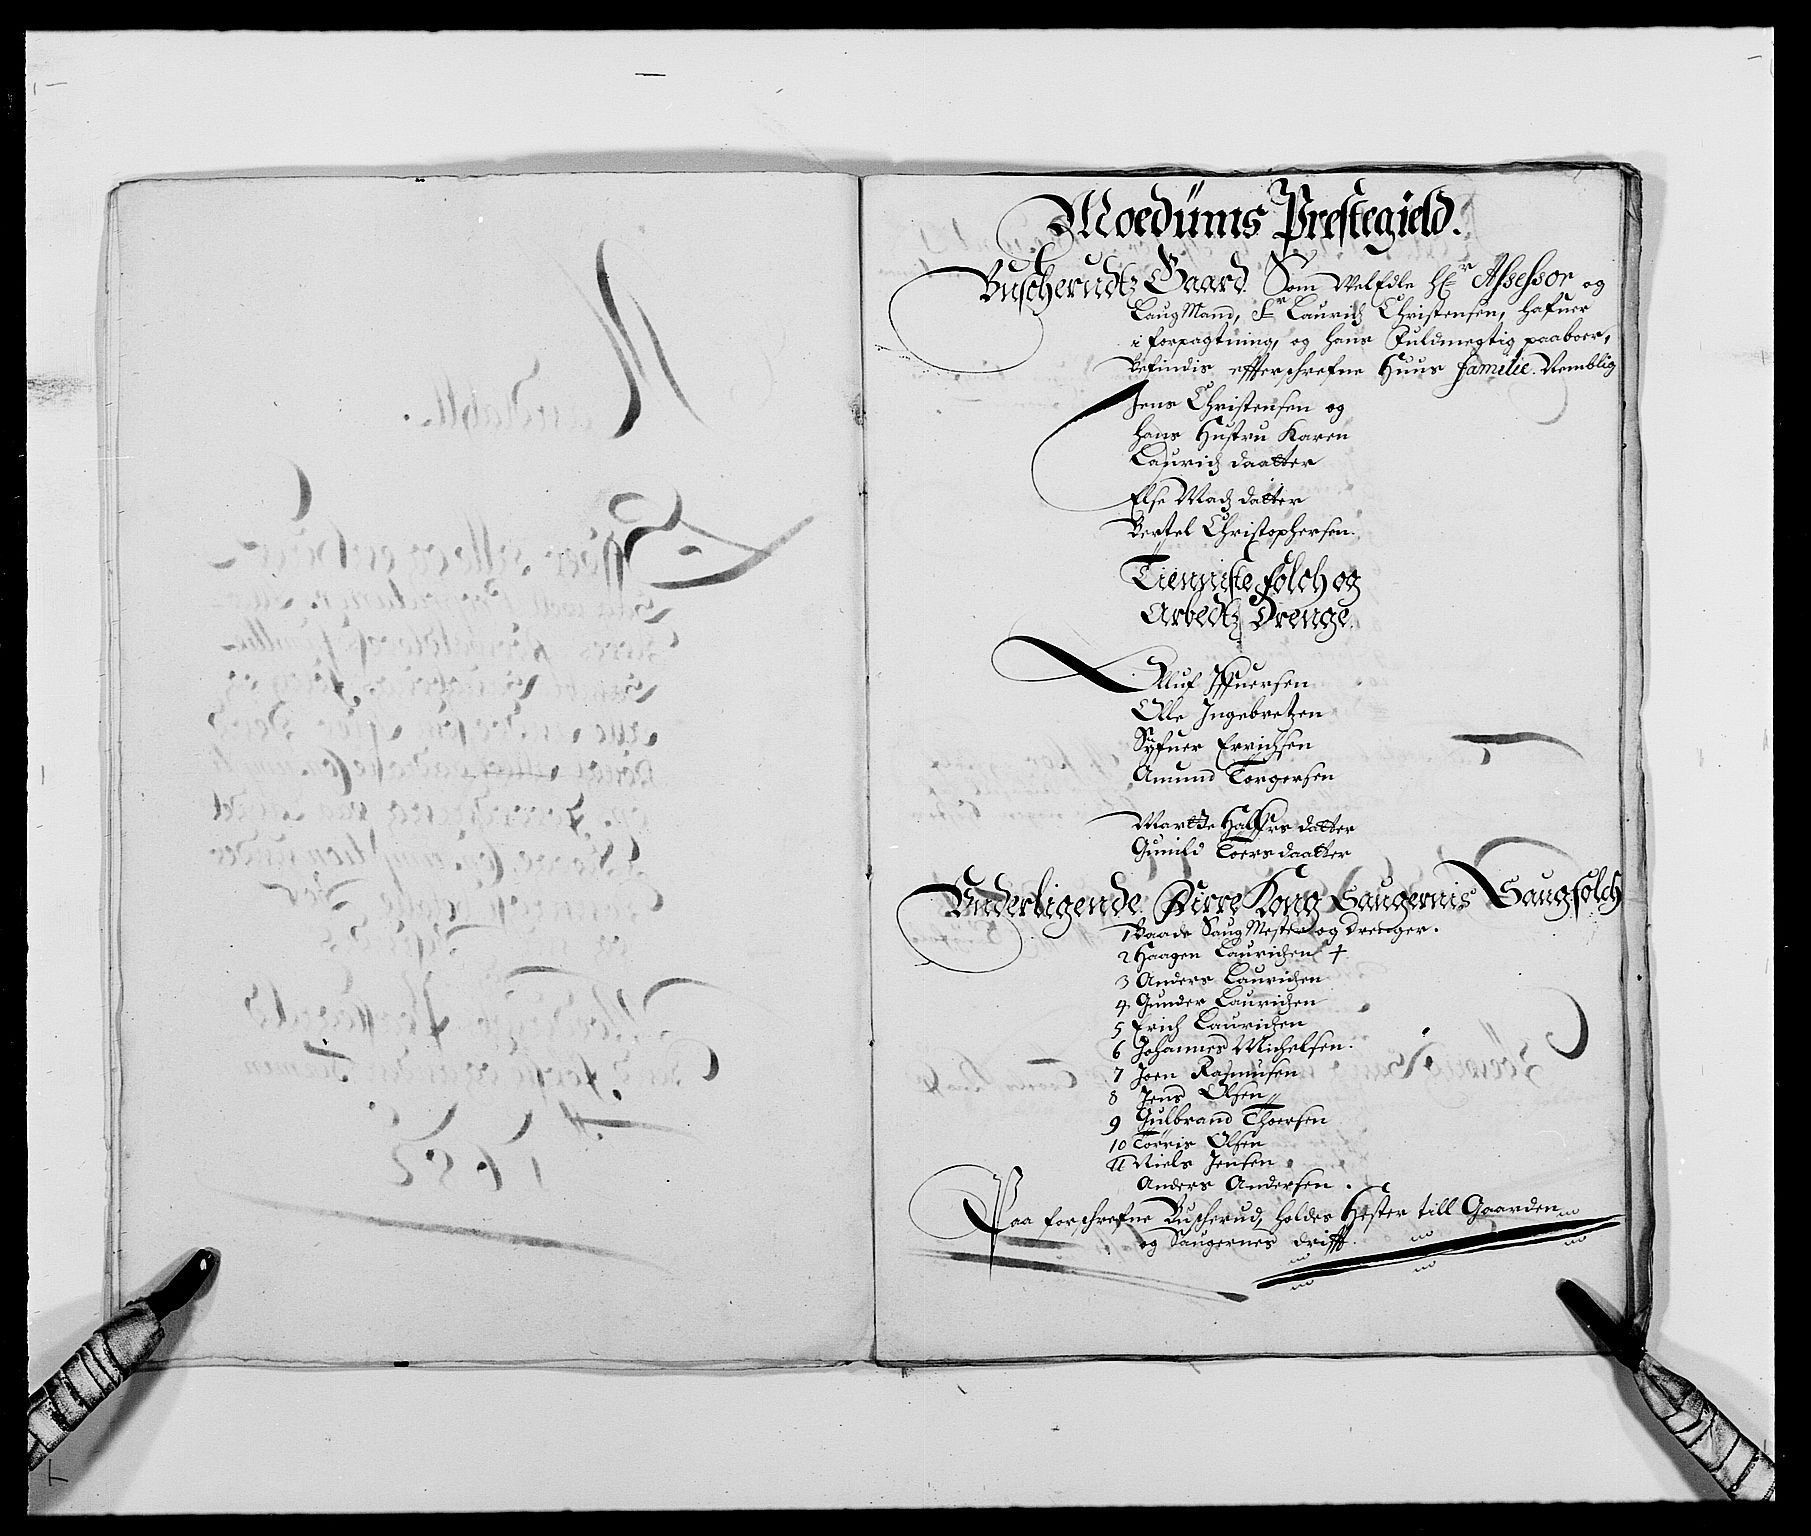 Moedüms Prestegield.
Buscherudtz Gaard Som WelEdle Hr Assessor og
LaugMand, Sr Lauritz Christensen, hafuer
i forpagtning, og hans Fuldmegtig paaboer,
Befindis effterschrefne Huus familie. Nemblig
Jens Christensen og
hans Hustru Karen
Lauritz daatter
Else Madz datter
Bertel Christophersen.
Tienniste folch og
Arbedtz Drenge.
Olluf Iffuersen
Olle Ingebretzen
Syfuer Errichsen
Amund Torgersen
Marthe Halfuors datter
Gunild Toersdaatter
Underligende Kirre Kong Saugernis Saugfolch
1 Baade SaugMester og Drenger.
2 Haagen Lauritzen +
3 Anders Lauritzen
4 Gunder Lauritzen
5 Erich Lauritzen
6 Johannes Michelsen.
7 Joen Rasmusen
8 Jens Olsen
9 Gulbrand Thoersen
10 Torris Olsen
11 Niels Jensen
Anders Andersen.
Paa forschrefne Buscherud, holdes Hester till Gaarden
og Saugernes drifft.